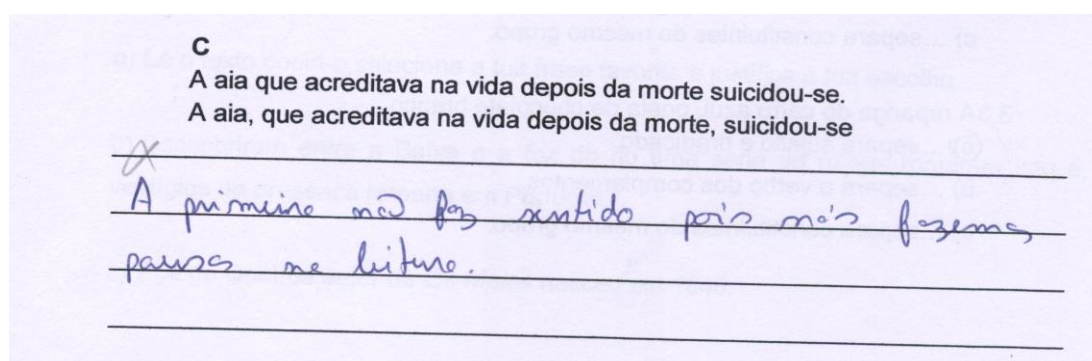 C
A aia que acreditava na vida depois da morte suicidou-se.
A aia, que acreditava na vida depois da morte, suicidou-se
A primeira não faz sentido pois nós fazemos
pausas na leitura.